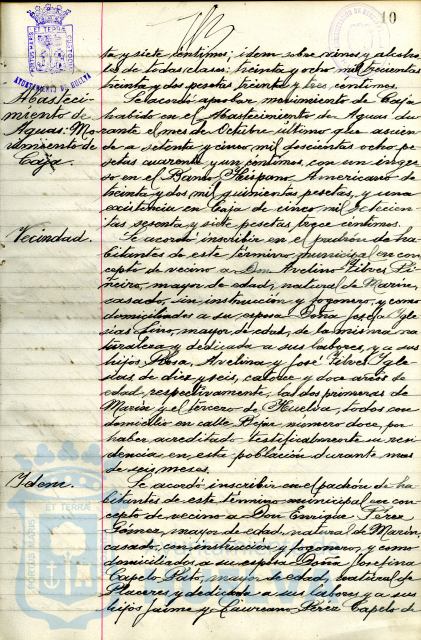 10
AYUNTAMIENTO DE HUELVA
ta y siete céntimos; idem sobre vinos y alcoho-
les de todas clases: treinta y ocho mil trescientas
treinta y dos pesetas treinta y tres céntimos.
Abasteci-
miento de
Aguas: Mo-
vimiento de
Caja.
Se acordó aprobar movimiento de Caja
habido en el Abastecimiento de Aguas du-
rante el mes de Octubre último que ascien-
de a setenta y cinco mil doscientos ocho pe-
setas cuarenta y un céntimos, con un ingre-
so en el Banco Hispano Americano de
treinta y dos mil quinientas pesetas, y una
existencia en Caja de cinco mil setecien-
tas sesenta y siete pesetas trece céntimos.
Vecindad.
Se acordó inscribir en el padrón de ha-
bitantes de este término municipal en con-
cepto de vecino a Don Avelino Pi-
ñeiro, mayor de edad, natural de Marín,
casado, sin instrucción y fogonero, y como
domiciliados a su esposa Doña Josefa Ygle-
sias mayor de edad, de la misma na-
turaleza y dedicada a sus labores, y a sus
hijos Rosa, Avelina y José Ygle-
sias de diez y seis, catorce y doce años de
edad, respectivamente, las dos primeras de
Marín y el tercero de Huelva, todos con
domicilio en calle Béjar número doce, por
haber acreditado testificalmente su resi-
dencia en esta población durante mas
de seis meses.
Ydem.
Se acordó inscribir en el padrón de ha-
bitantes de este término municipal en con-
cepto de vecino a Don Enrique Pérez
Gómez, mayor de edad, natural de Marín,
casado, con instrucción y fogonero, y como
domiciliados a su esposa Doña Josefina
Capelo Pato, mayor de edad, natural de
Placeres y dedicada a sus labores y a sus
hijos Jaime y Laureano Pérez Capelo de